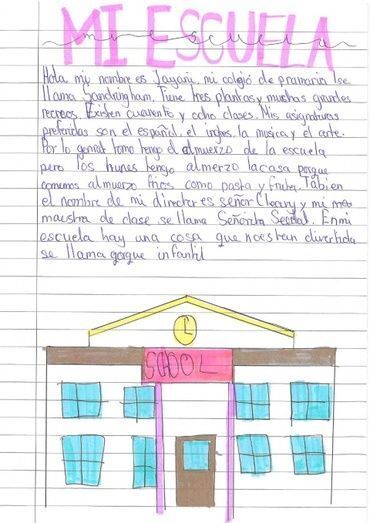 MI ESCUELA
mi escuela
Hola mi nombre es Jayani, mi colegio de pramaria se
llama Sandringham. Tiene tres plantas y muchas grandes
recreos. Existen cuarenta y ocho clases. Mis asignaturas
preferidas son el español, el ingles, la musica y el arte.
Por lo genral tomo tengo el almuerzo de la escuela
pero los lunes tengo almerzo la casa porque
comemos almuerzo frios como pasta y fruta. Tabien
el nombre de mi director es señor Cleary y mi
maestra de clase se llama Señorita Seegal. En mi
escuela hay una cosa que no es tan divertida
se llama gorque infantil
SCHOOL